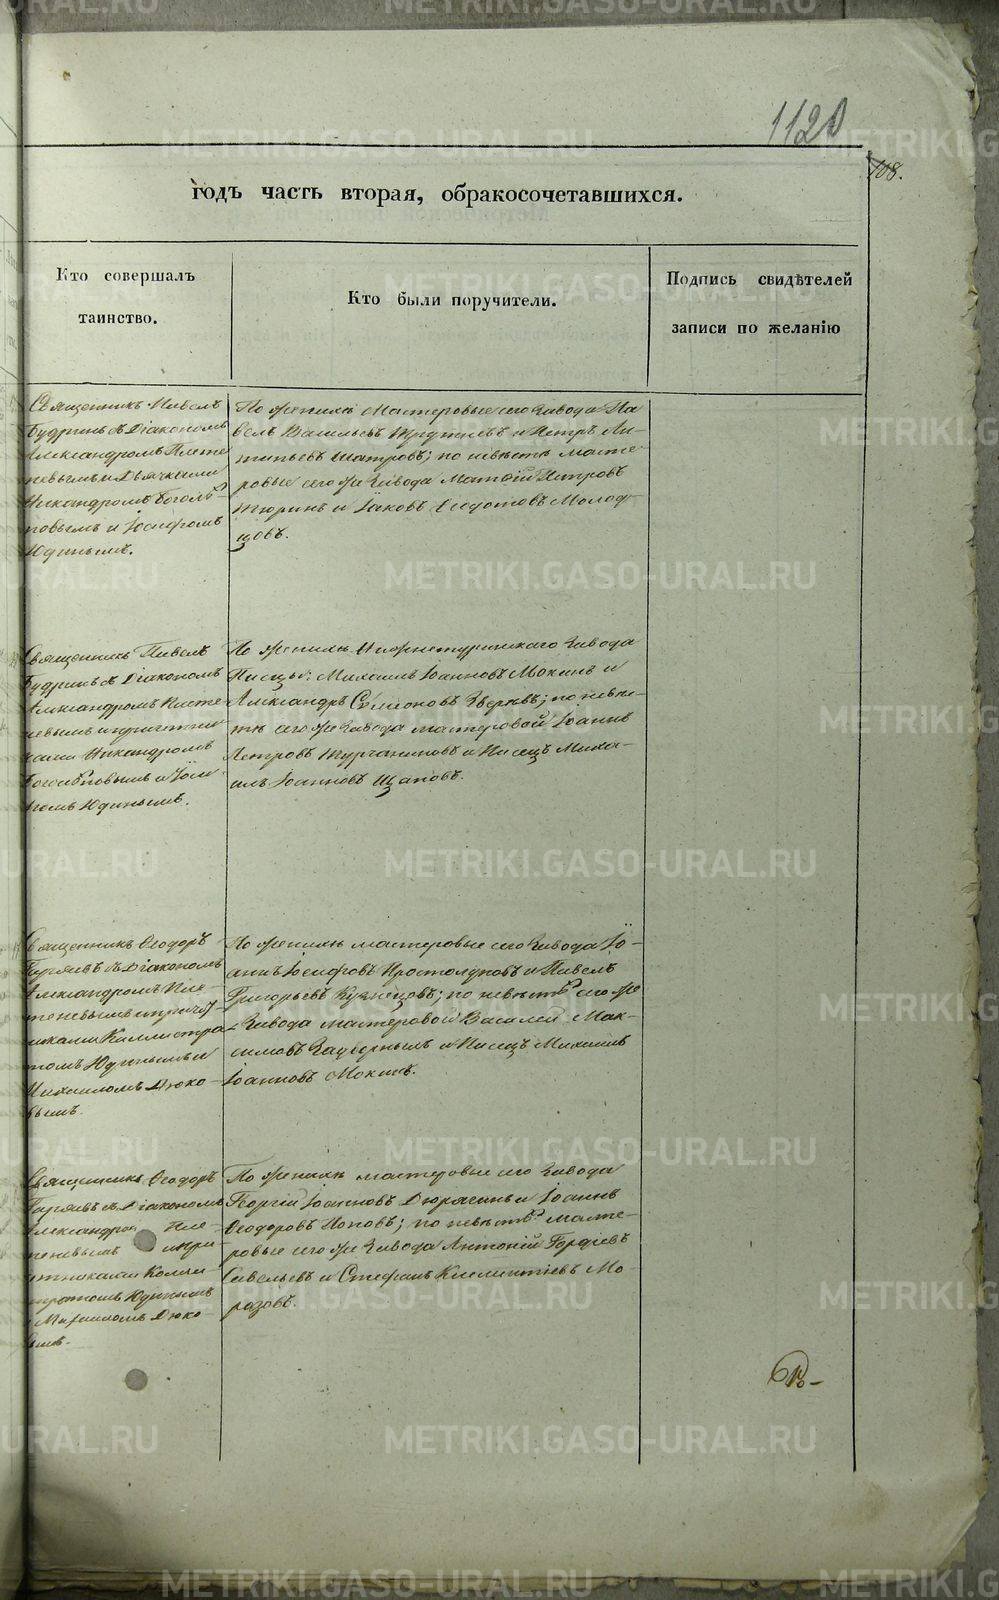 1120
108.
годъ часть вторая, обракосочетавшихся.
Кто совершалъ
таинство.
Кто были поручители.
Подпись свидѣтелей
записи по желанію
Священникъ Павелъ
Будринъ съ Діакономъ
Александромъ Плете
невымъ и Дьячками
Никандромъ Боголѣ
повымъ и Іосифомъ
Юдинымъ.
По женихѣ Мастеровые сего Завода Па
велъ Васильевъ и Петръ Ан
типьевъ Шатровъ; по невѣстѣ масте
ровые сего же Завода Матѳій Петровъ
Тюринъ и Іаковъ Ѳедотовъ Молод
цовъ.
Священникъ Павелъ
Будринъ съ Діакономъ
Александромъ Плете
невымъ и причетни
ками Никандромъ
Боголѣповымъ и Іоси
фомъ Юдинымъ.
По женихѣ Нижнетуринскаго Завода
Писцы: Михаилъ Іоанновъ Мокинъ и
Александръ Семеновъ Звѣревъ; по невѣс
тѣ сего же Завода мастеровой Іоаннъ
Петровъ Турчаниновъ и Писецъ Миха-
илъ Іоанновъ Щаповъ.
Священникъ Ѳеодоръ
съ Діакономъ
Александромъ Пле-
теневымъ и причет-
никами Каллистра
томъ Юдинымъ и
Михаиломъ Дюко-
вымъ.
По женихѣ мастеровые сего Завода Іо-
аннъ Іосифовъ Простолуповъ и Павелъ
Григорьевъ Кузнецовъ; по невѣстѣ сего же
Завода мастеровой Василій Мак-
симовъ Задворныхъ и Писецъ Михаилъ
Іоанновъ Мокинъ.
Священникъ Ѳеодоръ
съ Діакономъ
Александромъ Пле-
теневымъ и при-
четниками Калли-
стратомъ Юдинымъ
и Михаиломъ Дюко-
вымъ.
По женихѣ мастеровые сего Завода
Георгій Іоанновъ Дюрягинъ и Іоаннъ
Ѳеодоровъ Поповъ; по невѣстѣ масте-
ровые сего же Завода Антоній Гордіевъ
Савельевъ и Стефанъ Климентіевъ Мо-
розовъ.
METRIKI.GASO-URAL.RU